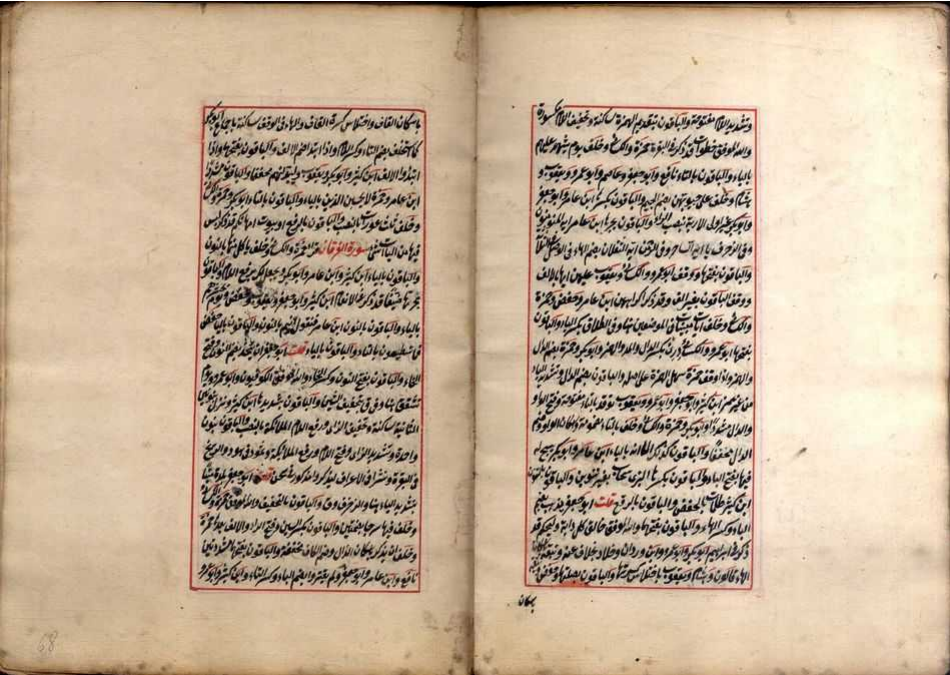 وتشديد اللام مفتوحة والباقون بتقديم الهمزة ساكنة وتخفيف اللام مكسورة
والله الموفق خطوات قد ذكر في البقرة حمزة والكسائي وخلف يوم يشهد عليهم
بالياء والباقون بالتاء نافع وابو جعفر وعاصم وابو عمرو ويعقوب و
هشام وخلف على جيوبهن بضم الجيم والباقون بكسرها ابن عامر وابو جعفر
وابو بكر غير اولي الاربة بنصب الراء والباقون بجرها ابن عامر ايه المؤمنون
وفي الزخرف يا ايه الساحر وفي الرحمن ايه الثقلان بضم الهاء في الوصل
والباقون بفتحها ووقف ابو عمرو والكسائي ويعقوب عليهن ايها بالالف
ووقف الباقون بغير الف وقد ذكر اكراههن ابن عامر وحفص وحمزة
والكسائي وخلف ايات مبينات في الموضعين هنا وفي الطلاق بكسر الياء والباقون
بفتحها ابو عمرو والكسائي دري بكسر الدال والمد والهمز وابو بكر وحمزة بضم الدال
والهمز واذا وقف حمزة سهل الهمزة على اصله والباقون بضم الدال وتشديد الياء
من غير همز ابن كثير وابو جعفر وابو عمرو ويعقوب توقد بالتاء مفتوحة وفتح الواو
والدال مشددا وابو بكر وحمزة والكسائي وخلف بالتاء مضمومة واسكان الواو وضم
الدال مخففا والباقون كذلك الا انه بالياء ابن عامر وابو بكر يسبح له
فيها بفتح الباء والباقون بكسرها البزي سحاب بغير تنوين والباقون بالتنوين
ابن كثير ظلمات بالخفض والباقون بالرفع قلت ابو جعفر يذهب بضم
الياء وكسر الهاء والباقون بفتحهما والله الموفق خالق كل دابة وليحكم قد
ذكر في ابراهيم ابو بكر وابو عمرو وابن وردان وخلاد بخلاف عنه ويتقه
الهاء قالون وهشام ويعقوب باختلاس كسرتها والباقون بصلتها وحفص
باسكان
باسكان القاف واختلاس كسرة القاف والهاء في الوقف ساكنة باجماع ابو بكر
كما استخلف بضم التاء وكسر اللام واذا ابتدا ضم الالف والباقون بفتحهما واذا
ابتدؤا الالف ابن كثير وابو بكر ويعقوب وليبدلنهم مخففا والباقون مشددا
ابن عامر وحمزة لا يحسبن الذين بالياء والباقون بالتاء ابو بكر وحمزة والكسائي
وخلف ثلث عورات بالنصب والباقون بالرفع او بيوت امهاتكم قد ذكر ليس
فيها من الياآت شيء سورة الفرقان قرا حمزة والكسائي وخلف نأكل منها بالنون
والباقون بالياء ابن كثير وابن عامر وابو بكر ويجعل لك برفع اللام والباقون
بجزمها ضيقا قد ذكر في الانعام ابن كثير وابو جعفر ويعقوب وحفص ويوم يحشرهم
بالياء والباقون بالنون ابن عامر فنقول ءانتم بالنون والباقون بالياء حفص
فما تستطيعون بالتاء والباقون بالياء قلت ابو جعفر ان نتخذ بضم النون وفتح
الخاء والباقون بفتح النون وكسر الخاء والله الموفق الكوفيون وابو عمرو ويوم
تشقق هنا وفي ق بتخفيف الشين والباقون بتشديدها ابن كثير وننزل بنونين
الثانية ساكنة وتخفيف الزاي ورفع اللام الملائكة بالنصب والباقون بنون
واحدة وتشديد الزاي وفتح اللام ورفع الملائكة وعاد وثمود في هود والريح
في البقرة ونشرا في الاعراف ليذكروا مذكور في سبحان قلت ابو جعفر بلدة ميتا
بتشديد الياء هنا والزخرف وق والباقون بالتخفيف والله الموفق حمزة والكسائي
وخلف فيها سرجا بضمتين والباقون بكسر السين وفتح الراء والالف بعدها حمزة
وخلف ان يذكر باسكان الذال وضم الكاف مخففة والباقون بفتحهما مشددتين
نافع وابن عامر وابو جعفر ولم يقتروا بضم الياء وكسر التاء وابن كثير وابو عمرو
68